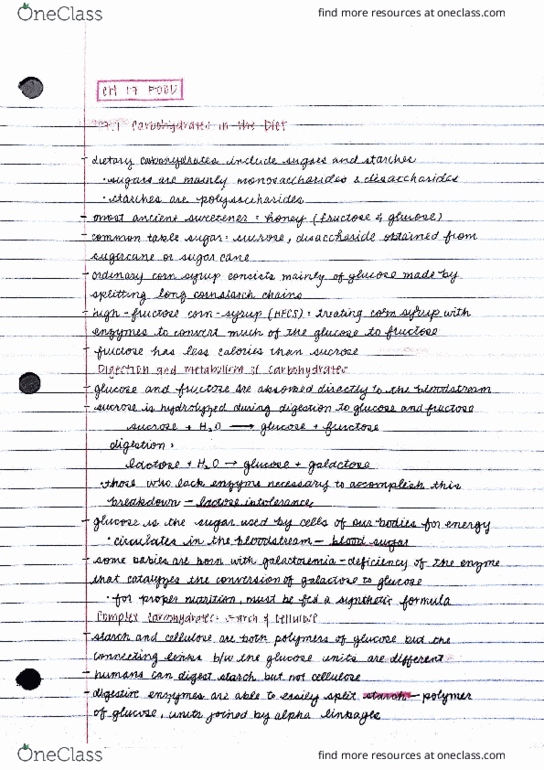 OneClass
find more resources at oneclass.com
CH 17 FOOD
17.1 Carbohydrates in the Diet
- dietary carbohydrates include sugars and starches
• sugars are mainly monosaccharides & disaccharides
• starches are polysaccharides
- most ancient sweetener: honey (fructose & glucose)
- common table sugar: sucrose, disaccharide obtained from
sugarcane or sugar cane
- ordinary corn syrup consists mainly of glucose made by
splitting long cornstarch chains
- high-fructose corn-syrup (HFCS): treating corn syrup with
enzymes to convert much of the glucose to fructose
- fructose has less calories than sucrose
Digestion and metabolism of carbohydrates
- glucose and fructose are absorbed directly to the bloodstream
- sucrose is hydrolyzed during digestion to glucose and fructose
sucrose + H₂O → glucose + fructose
digestion:
lactose + H₂O → glucose + galactose
• those who lack enzyme necessary to accomplish this
breakdown - lactose intolerance
- glucose is the sugar used by cells of our bodies for energy
• circulates in the bloodstream - blood sugar
- some babies are born with galactosemia - deficiency of the enzyme
that catalyzes the conversion of galactose to glucose
• for proper nutrition, must be fed a synthetic formula
Complex Carbohydrates: Starch & Cellulose
- starch and cellulose are both polymers of glucose but the
connecting links b/w the glucose units are different
- humans can digest starch but not cellulose
- digestive enzymes are able to easily split starch - polymer
of glucose, units joined by alpha linkages
OneClass
find more resources at oneclass.com